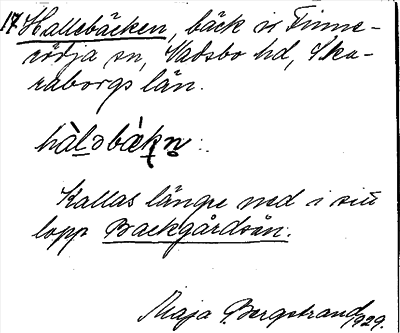 17. Hallebäcken, bäck i Finne-
rödja sn, Vadsbo hd, Ska-
raborgs län.
hàlǝbækn̥.
Kallas längre ned i sitt
lopp Backgårdsån.
Maja Bergstrand 1929.